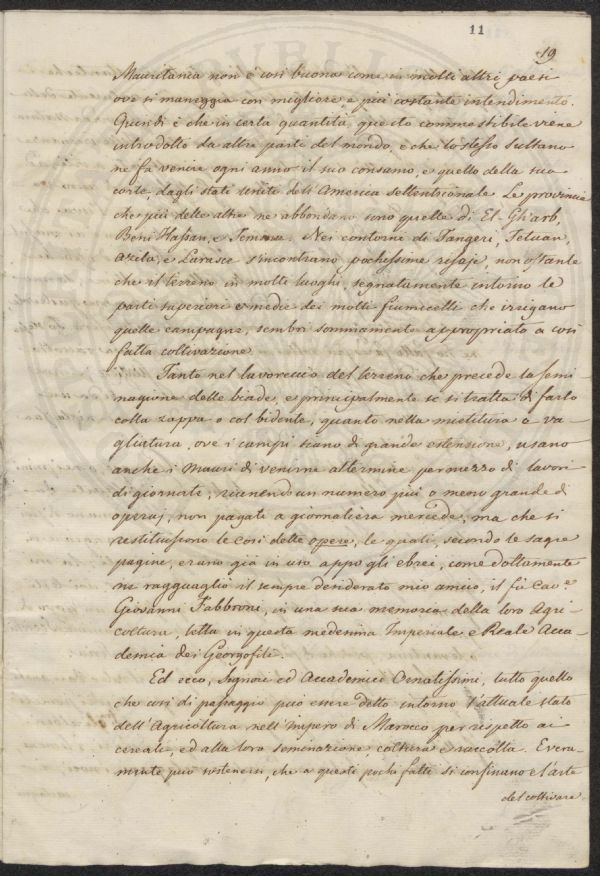 11
19
Mauritania non è così buono come in molti altri paesi
ove si maneggia con migliore, e più costante intendimento.
Quindi è che in certa quantità questo commestibile viene
introdotto da altre parti del mondo, e che lo stesso Sultano
ne fa venire ogni anno il suo consumo, e quello della sua
corte, dagli stati uniti dell'America settentrionale. Le provincie
che più delle altre ne abbondano sono quelle di El-Gharb,
Beni Hassan, e Temsna. Nei contorni di Tangeri, Tetuan,
Arzila, e Larasce s'incontrano pochissime risaje, non ostante
che il terreno in molti luoghi, segnatamente intorno le
parti superiori e medie dei molti fiumicelli che irrigano
quelle campagne, sembri sommamente appropriato a così
fatta coltivazione.
Tanto nel lavoreccio del terreno che precede la semi-
nagione delle biade, e principalmente se si tratta di farlo
colla zappa o col bidente, quanto nella mietitura o va-
gliatura, ove i campi siano di grande estensione, usano
anche i Mauri di venirne al termine per mezzo di lavori
di giornate, riunendo un numero più o meno grande di
operaj, non pagati a giornaliera mercede, ma che si
restituissono le così dette opere, le quali, secondo le sagre
pagine, erano già in uso appo gli ebrei, come dottamente
ne ragguagliò il sempre desiderato mio amico, il fù Cav.e
Giovanni Fabbroni, in una sua memoria della loro Agri-
coltura, letta in questa medesima Imperiale e Reale Acca-
demia dei Georgofili.
Ed ecco, Signori ed Accademici Ornatissimi, tutto quello
che così di passaggio può essere detto intorno l'attuale stato
dell'Agricoltura nell'Impero di Marocco per rispetto ai
cereali, ed alla loro seminazione, coltura e raccolta. E vera-
mente può sostenersi, che a questi pochi fatti si confinano e l'arte
del coltivare